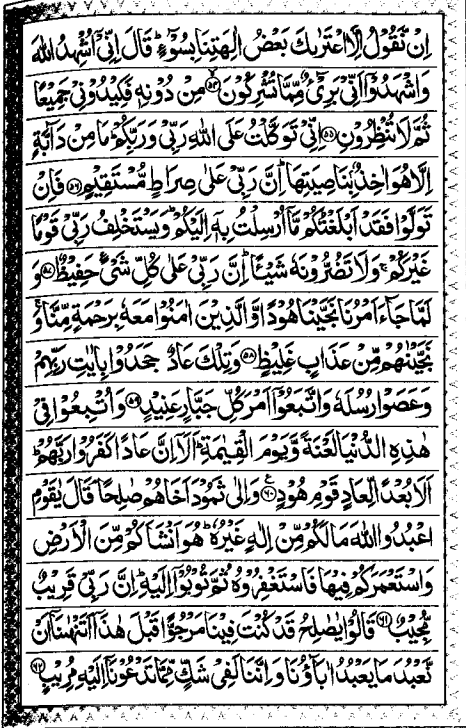 اِنْ نَّقُوْلُ اِلَّا اعْتَرٰىكَ بَعْضُ اٰلِهَتِنَا بِسُوْٓءٍ ؕ قَالَ اِنِّیْۤ اُشْهِدُ اللّٰهَ
وَ اشْهَدُوْۤا اَنِّیْ بَرِیْٓءٌ مِّمَّا تُشْرِكُوْنَ ۙ﴿۵۴﴾ مِنْ دُوْنِهٖ فَكِیْدُوْنِیْ جَمِیْعًا
ثُمَّ لَا تُنْظِرُوْنِ ﴿۵۵﴾ اِنِّیْ تَوَكَّلْتُ عَلَی اللّٰهِ رَبِّیْ وَ رَبِّكُمْ ؕ مَا مِنْ دَآبَّةٍ
اِلَّا هُوَ اٰخِذٌۢ بِنَاصِیَتِهَا ؕ اِنَّ رَبِّیْ عَلٰی صِرَاطٍ مُّسْتَقِیْمٍ ﴿۵۶﴾ فَاِنْ
تَوَلَّوْا فَقَدْ اَبْلَغْتُكُمْ مَّاۤ اُرْسِلْتُ بِهٖۤ اِلَیْكُمْ ؕ وَ یَسْتَخْلِفُ رَبِّیْ قَوْمًا
غَیْرَكُمْ ۚ وَ لَا تَضُرُّوْنَهٗ شَیْـًٔا ؕ اِنَّ رَبِّیْ عَلٰی كُلِّ شَیْءٍ حَفِیْظٌ ﴿۵۷﴾ وَ
لَمَّا جَآءَ اَمْرُنَا نَجَّیْنَا هُوْدًا وَّ الَّذِیْنَ اٰمَنُوْا مَعَهٗ بِرَحْمَةٍ مِّنَّا ۚ وَ
نَجَّیْنٰهُمْ مِّنْ عَذَابٍ غَلِیْظٍ ﴿۵۸﴾ وَ تِلْكَ عَادٌ ۙ۫ جَحَدُوْا بِاٰیٰتِ رَبِّهِمْ
وَ عَصَوْا رُسُلَهٗ وَ اتَّبَعُوْۤا اَمْرَ كُلِّ جَبَّارٍ عَنِیْدٍ ﴿۵۹﴾ وَ اُتْبِعُوْا فِیْ
هٰذِهِ الدُّنْیَا لَعْنَةً وَّ یَوْمَ الْقِیٰمَةِ ؕ اَلَاۤ اِنَّ عَادًا كَفَرُوْا رَبَّهُمْ ؕ
اَلَا بُعْدًا لِّعَادٍ قَوْمِ هُوْدٍ ﴿۶۰﴾ وَ اِلٰی ثَمُوْدَ اَخَاهُمْ صٰلِحًا ۘ قَالَ یٰقَوْمِ
اعْبُدُوا اللّٰهَ مَا لَكُمْ مِّنْ اِلٰهٍ غَیْرُهٗ ؕ هُوَ اَنْشَاَكُمْ مِّنَ الْاَرْضِ
وَ اسْتَعْمَرَكُمْ فِیْهَا فَاسْتَغْفِرُوْهُ ثُمَّ تُوْبُوْۤا اِلَیْهِ ؕ اِنَّ رَبِّیْ قَرِیْبٌ
مُّجِیْبٌ ﴿۶۱﴾ قَالُوْا یٰصٰلِحُ قَدْ كُنْتَ فِیْنَا مَرْجُوًّا قَبْلَ هٰذَاۤ اَتَنْهٰىنَاۤ اَنْ
نَّعْبُدَ مَا یَعْبُدُ اٰبَآؤُنَا وَ اِنَّنَا لَفِیْ شَكٍّ مِّمَّا تَدْعُوْنَاۤ اِلَیْهِ مُرِیْبٍ ﴿۶۲﴾